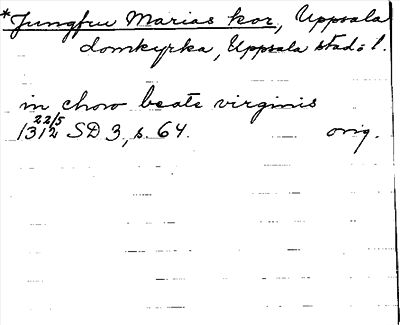 *Jungfru Marias kor, Uppsala
domkyrka, Uppsala stad o l.
in choro beate virginis
1312 22/5 SD 3, s. 64. orig.